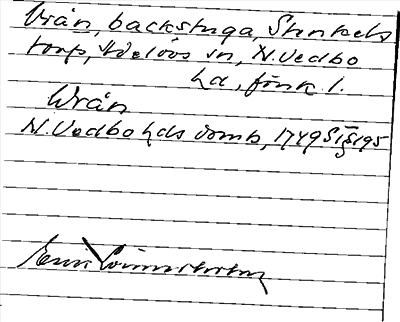 Vrån, backstuga, Stenkels
torp, Adelövs sn, N. Vedbo
hd, Jönk. l.
Wrån
N. Vedbo hds domb, 1749 S I § 195